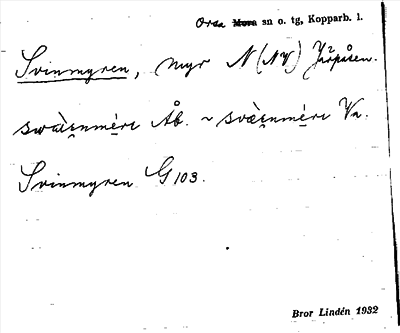 Orsa Mora sn o. tg, Kopparb. l.
Svinmyren, myr N (NV) Järpåsen.
swàɪ̯nmèrɛ Åb. ~ svæ̀ɪ̯nmérɛ Va.
Svinmyren G 103.
Bror Lindén 1932